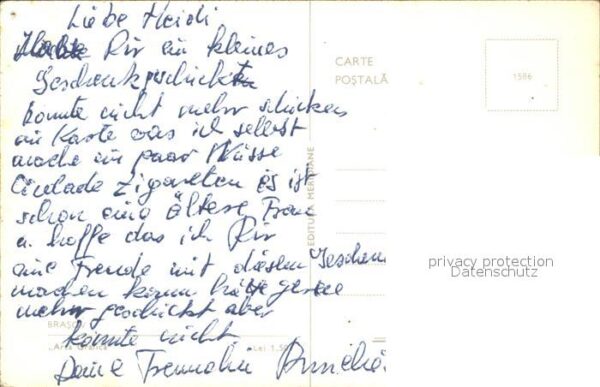 Liebe Heidi
Habe Dir ein kleines
Geschenk geschickt
konnte nicht mehr schicken
ein Karte was ich selbst
mache ein paar Nüsse
Zigareten es ist
schon eine Ältere Frau
u. hoffe das ich Dir
eine Freude mit diesem Geschen
machen kann hätte gerne
mehr geschickt aber
konnte nicht.
Deine Freundin
CARTE
POȘTALĂ
1586
EDITURA MERIDIANE
BRAȘOV
„Arta Grafică"
Lei 1,50
privacy protection
Datenschutz